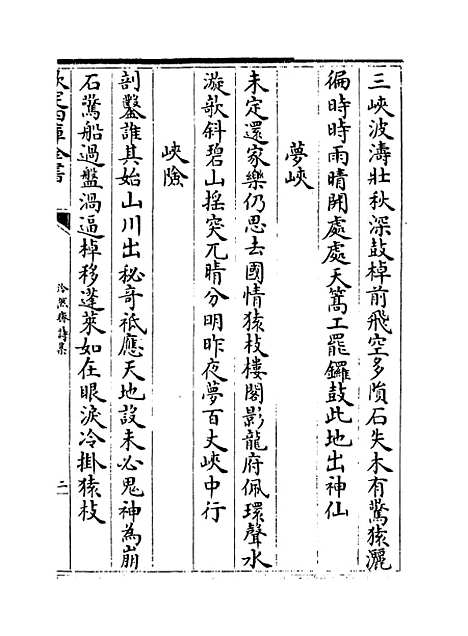 三峽波濤壯秋深鼓棹前飛空多隕石失木有驚猿灑
徧時時雨晴開處處天篙工罷鑼鼓此地出神仙
夢峽
未定還家樂仍思去國情猿枝樓閣影龍府佩環聲水
漩欹斜碧山揺突兀晴分明昨夜夢百丈峽中行
峽險
剖鑿誰其始山川出秘奇祗應天地設未必鬼神為崩
石驚船過盤渦逼棹移蓬萊如在眼淚冷掛猿枝
欽定四庫全書
泠然齋詩集
二